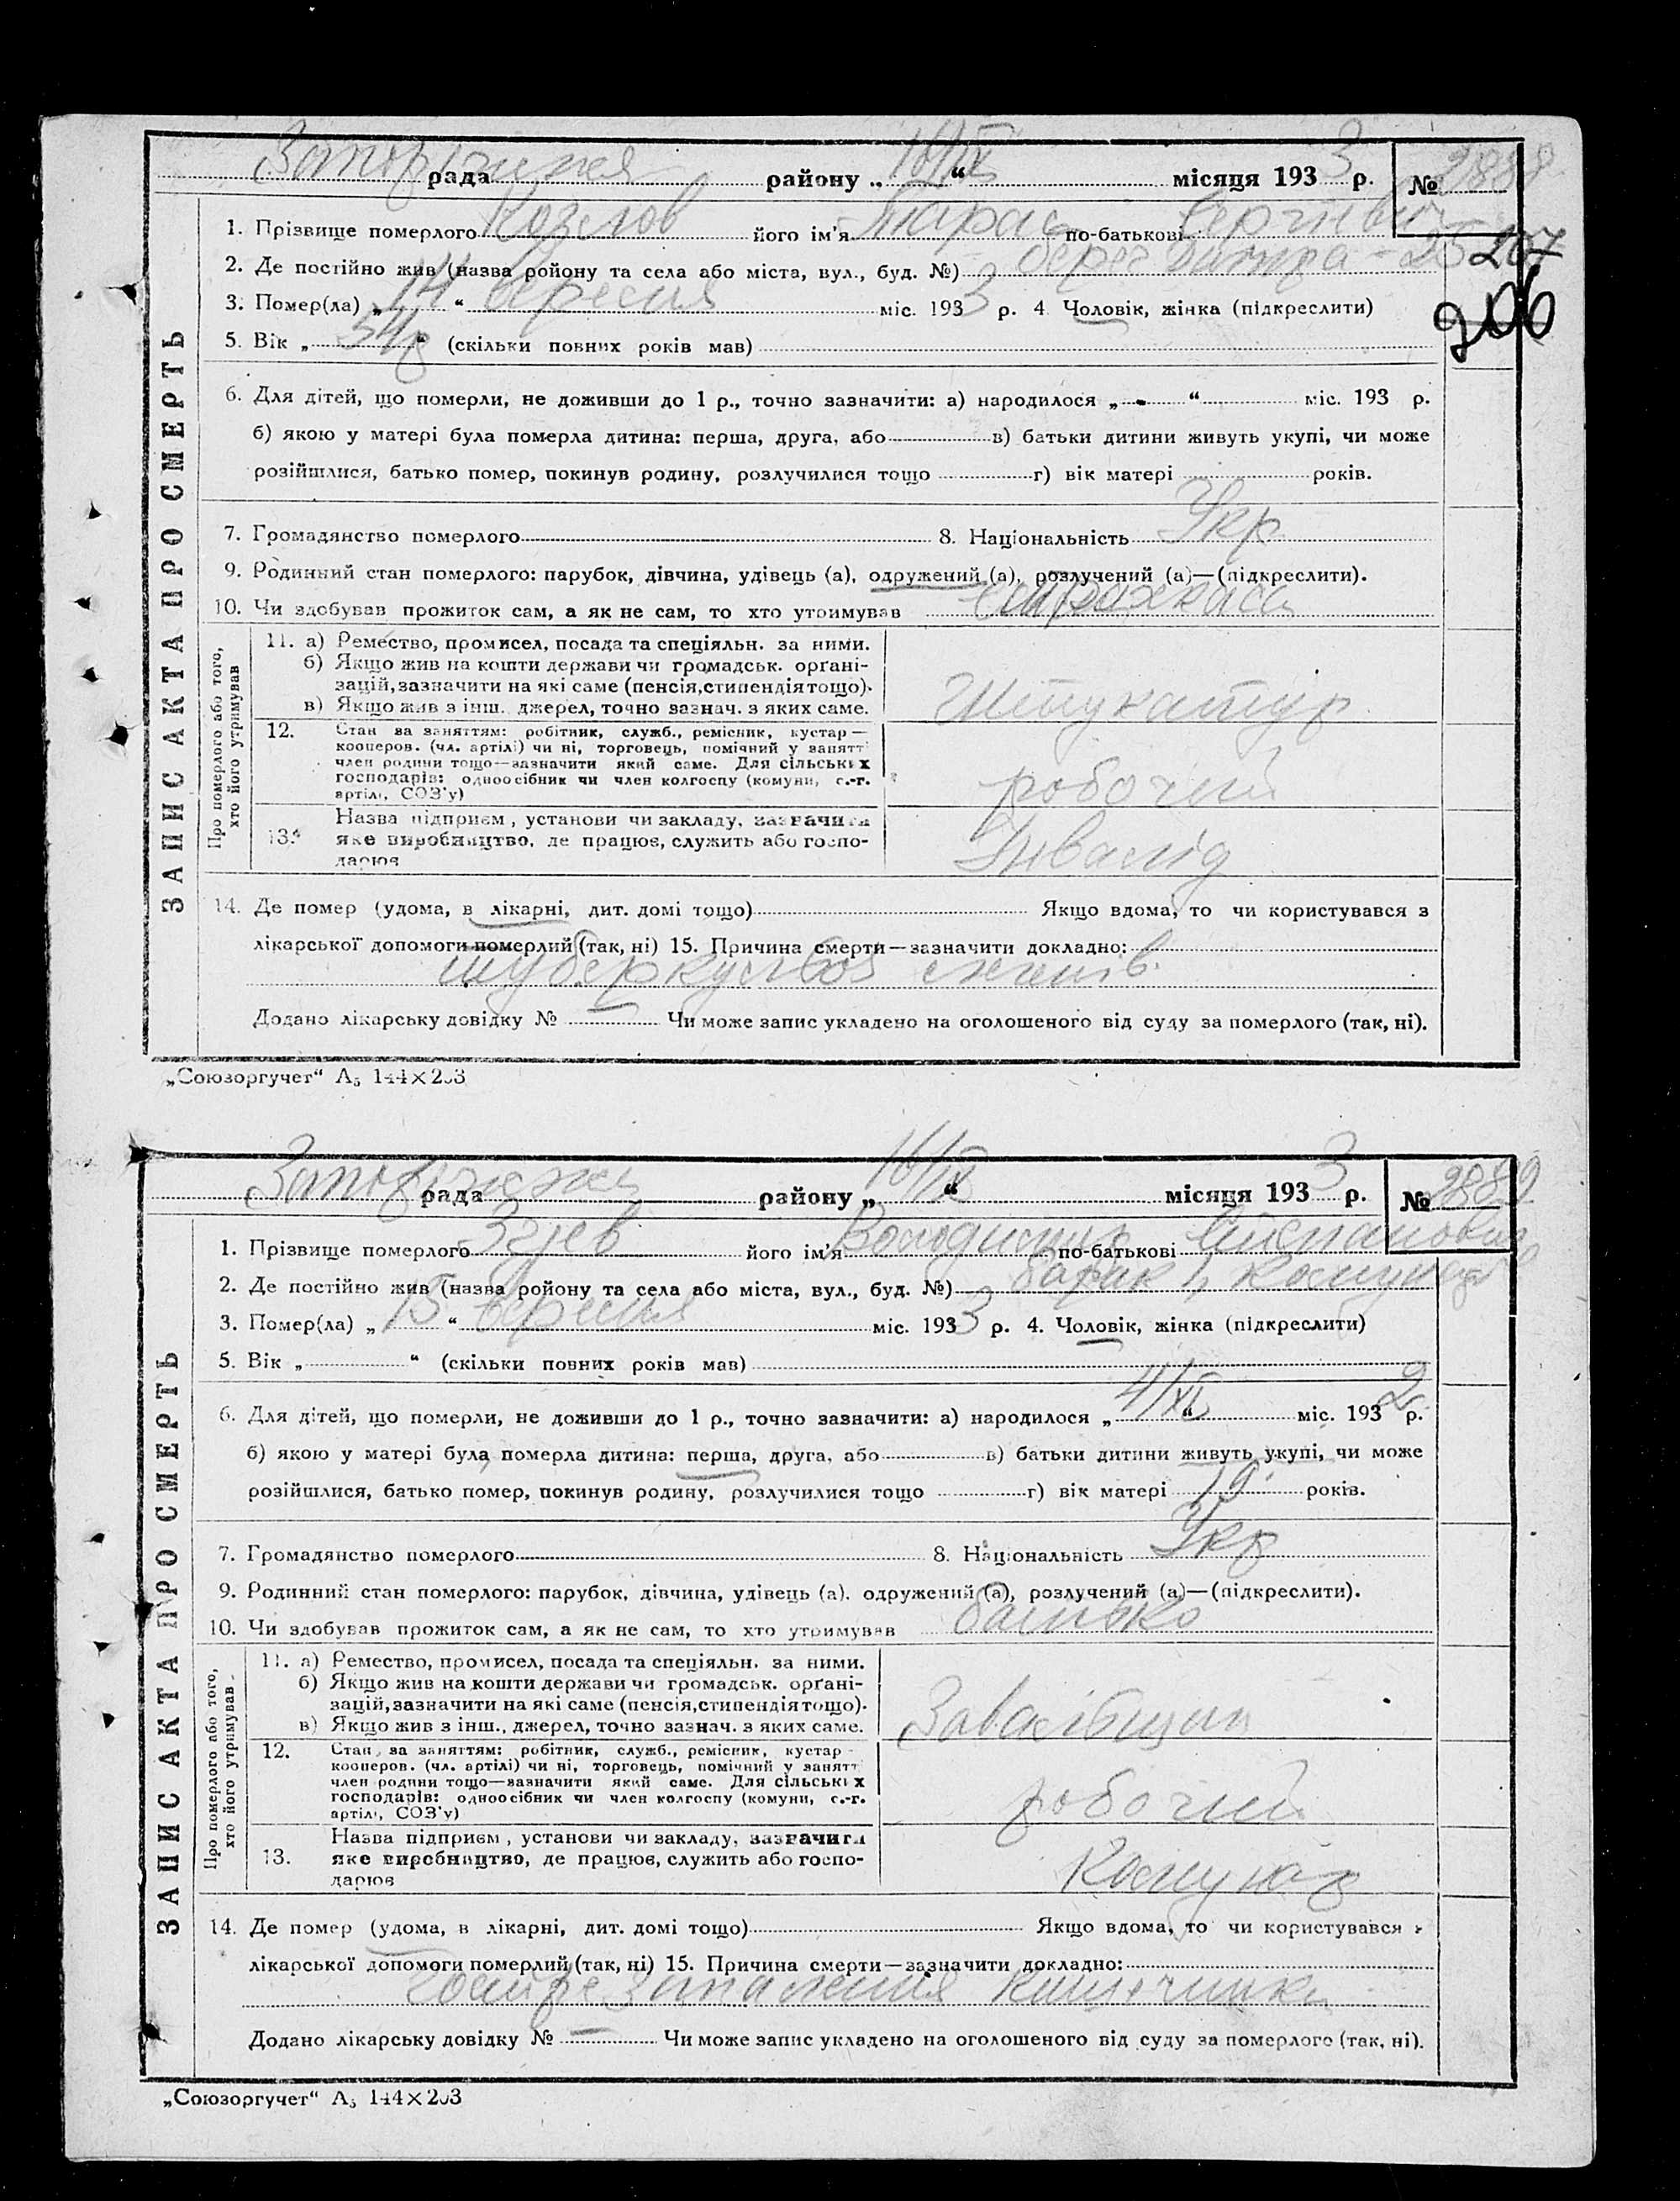 Запорізька рада району „ 16/IX “ місяця 1933 р. № 2888
1. Прізвище померлого Козелов його ім'я Тарас по-батькові Сергієвич
2. Де постійно жив (назва ройону та села або міста, вул., буд. №) берег Дніпра - 25
207
206
3. Помер(ла) „ 14 “ вересня міс. 1933 р. 4 Чоловік, жінка (підкреслити)
5. Вік „ 54 р “ (скільки повних років мав)
6. Для дітей, що померли, не доживши до 1 р., точно зазначити: а) народилося „ - “ міс. 193 р.
б) якою у матері була померла дитина: перша, друга, або в) батьки дитини живуть укупі, чи може
розійшлися, батько помер, покинув родину, розлучилися тощо г) вік матері років.
7. Громадянство померлого 8. Національність Укр
9. Родинний стан померлого: парубок, дівчина, удівець (а), одружений (а), розлучений (а)—(підкреслити).
10. Чи здобував прожиток сам, а як не сам, то хто утримував страхкаса
ЗАПИС АКТА ПРО СМЕРТЬ
Про померлого або того,
хто його утримував
11. а) Ремество, промисел, посада та спеціяльн. за ними.
б) Якщо жив на кошти держави чи громадськ. орґані-
зацій, зазначити на які саме (пенсія, стипендія тощо).
в) Якщо жив з інш. джерел, точно зазнач. з яких саме.
Штукатур
12. Стан за заняттям: робітник, служб., ремісник, кустар —
кооперов. (чл. артілі) чи ні, торговець, помічний у занятт
член родини тощо—зазначити який саме. Для сільських
господарів: одноосібник чи член колгоспу (комуни, с.-г.
артілі, СОЗ'у)
робочий
13. Назва підприєм, установи чи закладу, зазначити
яке виробництво, де працює, служить або госпо-
дарює
Інвалід
14. Де помер (удома, в лікарні, дит. домі тощо) Якщо вдома, то чи користувався з
лікарської допомоги померлий (так, ні) 15. Причина смерти—зазначити докладно:
туберкульоз легенів
Додано лікарську довідку № Чи може запис укладено на оголошеного від суду за померлого (так, ні).
„Союзоргучет“ А₅ 144×203
Запорізька рада району „ 16/IX “ місяця 1933 р. № 2889
1. Прізвище померлого його ім'я Володимир по-батькові Степанович
2. Де постійно жив (назва ройону та села або міста, вул., буд. №) барак 1, Комунар
3. Помер(ла) „ 15 “ вересня міс. 1933 р. 4. Чоловік, жінка (підкреслити)
5. Вік „ “ (скільки повних років мав)
6. Для дітей, що померли, не доживши до 1 р., точно зазначити: а) народилося „ 4/XI “ міс. 1932 р.
б) якою у матері була померла дитина: перша, друга, або в) батьки дитини живуть укупі, чи може
розійшлися, батько помер, покинув родину, розлучилися тощо г) вік матері 19 років.
7. Громадянство померлого 8. Національність Укр
9. Родинний стан померлого: парубок, дівчина, удівець (а). одружений (а), розлучений (а)—(підкреслити).
10. Чи здобував прожиток сам, а як не сам, то хто утримував батько
ЗАПИС АКТА ПРО СМЕРТЬ
Про померлого або того,
хто його утримував
11. а) Ремество, промисел, посада та спеціяльн. за ними.
б) Якщо жив на кошти держави чи громадськ. орґані-
зацій, зазначити на які саме (пенсія, стипендія тощо).
в) Якщо жив з інш., джерел, точно зазнач. з яких саме.
12. Стан за заняттям: робітник, служб., ремісник, кустар -
кооперов. (чл. артілі) чи ні, торговець, помічний у занятт
член родини тощо—зазначити який саме. Для сільських
господарів: одноосібник чи член колгоспу (комуни, с.-г.
артілі, СОЗ'у)
робочий
13. Назва підприєм, установи чи закладу, зазначити
яке виробництво, де працює, служить або госпо-
дарює
Комунар
14. Де помер (удома, в лікарні, дит. домі тощо) Якщо вдома, то чи користувався з
лікарської допомоги померлий (так, ні) 15. Причина смерти—зазначити докладно:
гостре запалення кишечника
Додано лікарську довідку № Чи може запис укладено на оголошеного від суду за померлого (так, ні).
„Союзоргучет“ А₅ 144×203